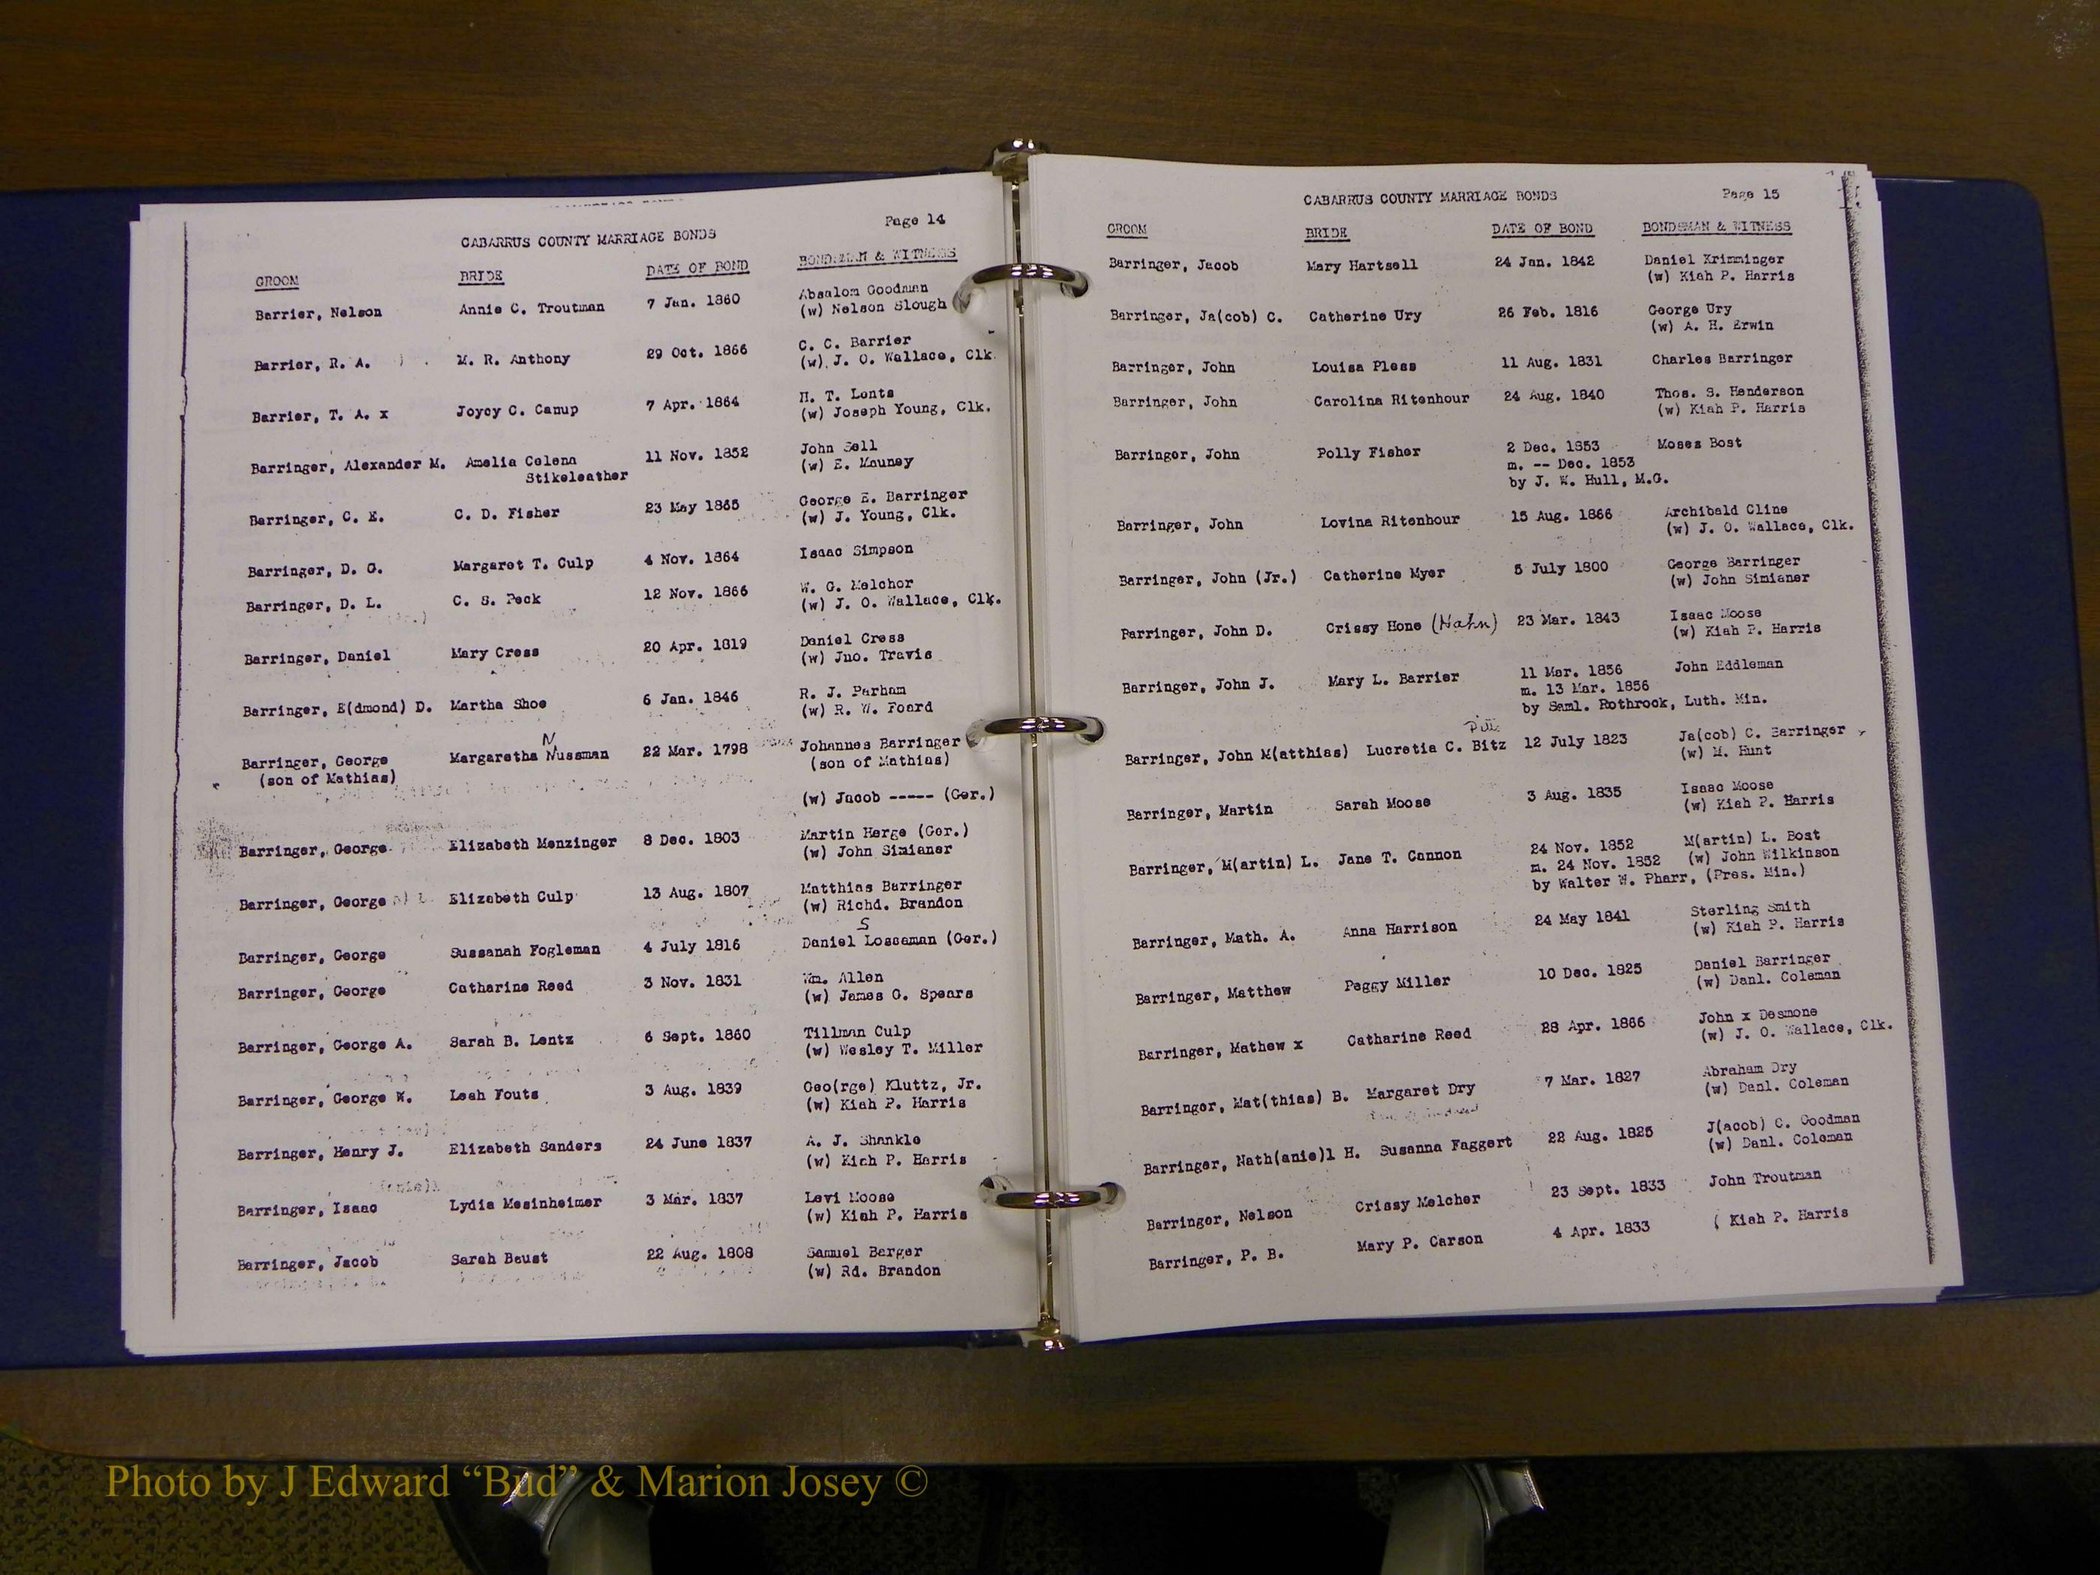 Page 14
CABARRUS COUNTY MARRIAGE BONDS
GROOM BRIDE DATE OF BOND BONDSMAN & WITNESS
Barrier, Nelson Annie C. Troutman 7 Jan. 1860 Absalom Goodman
(w) Nelson Slough
Barrier, R. A. M. R. Anthony 29 Oct. 1866 C. C. Barrier
(w) J. O. Wallace, Clk.
Barrier, T. A. x Joycy C. Canup 7 Apr. 1864 H. T. Lentz
(w) Joseph Young, Clk.
Barringer, Alexander M. Amelia Celena 11 Nov. 1852 John Sell
Stikeleather (w) E. Mauney
Barringer, C. E. C. D. Fisher 23 May 1865 George E. Barringer
(w) J. Young, Clk.
Barringer, D. G. Margaret T. Culp 4 Nov. 1864 Isaac Simpson
Barringer, D. L. C. S. Peck 12 Nov. 1866 W. G. Melchor
(w) J. O. Wallace, Clk.
Barringer, Daniel Mary Cress 20 Apr. 1819 Daniel Cress
(w) Jno. Travis
Barringer, E(dmond) D. Martha Shoe 6 Jan. 1846 R. J. Parham
(w) R. W. Foard
N
Barringer, George Margaretha Nussman 22 Mar. 1798 Johannes Barringer
(son of Mathias) (son of Mathias)
(w) Jacob ----- (Ger.)
Barringer, George Elizabeth Menzinger 8 Dec. 1803 Martin Herge (Ger.)
(w) John Simianer
Barringer, George Elizabeth Culp 13 Aug. 1807 Matthias Barringer
(w) Richd. Brandon
S
Barringer, George Sussanah Fogleman 4 July 1816 Daniel Losceman (Ger.)
Barringer, George Catharine Reed 3 Nov. 1831 Wm. Allen
(w) James G. Spears
Barringer, George A. Sarah B. Lentz 6 Sept. 1860 Tillman Culp
(w) Wesley T. Miller
Barringer, George W. Leah Fouts 3 Aug. 1839 Geo(rge) Kluttz, Jr.
(w) Kiah P. Harris
Barringer, Henry J. Elizabeth Sanders 24 June 1837 A. J. Shankle
(w) Kiah P. Harris
Barringer, Isaac Lydia Mesinheimer 3 Mar. 1837 Levi Moose
(w) Kiah P. Harris
Barringer, Jacob Sarah Beust 22 Aug. 1808 Samuel Barger
(w) Rd. Brandon
CABARRUS COUNTY MARRIAGE BONDS Page 15
GROOM BRIDE DATE OF BOND BONDSMAN & WITNESS
Barringer, Jacob Mary Hartsell 24 Jan. 1842 Daniel Krimminger
(w) Kiah P. Harris
Barringer, Ja(cob) C. Catherine Ury 26 Feb. 1816 George Ury
(w) A. H. Erwin
Barringer, John Louisa Pless 11 Aug. 1831 Charles Barringer
Barringer, John Carolina Ritenhour 24 Aug. 1840 Thos. S. Henderson
(w) Kiah P. Harris
Barringer, John Polly Fisher 2 Dec. 1853 Moses Bost
m. -- Dec. 1853
by J. W. Hull, M.G.
Barringer, John Lovina Ritenhour 15 Aug. 1866 Archibald Cline
(w) J. O. Wallace, Clk.
Barringer, John (Jr.) Catherine Myer 5 July 1800 George Barringer
(w) John Simianer
Parringer, John D. Crissy Hone (Hahn) 23 Mar. 1843 Isaac Moose
(w) Kiah P. Harris
Barringer, John J. Mary L. Barrier 11 Mar. 1856 John Eddleman
m. 13 Mar. 1856
by Saml. Rothrock, Luth. Min.
Pitts
Barringer, John M(atthias) Lucretia C. Bitz 12 July 1823 Ja(cob) C. Barringer
(w) M. Hunt
Barringer, Martin Sarah Moose 3 Aug. 1835 Isaac Moose
(w) Kiah P. Harris
Barringer, M(artin) L. Jane T. Cannon 24 Nov. 1852 M(artin) L. Bost
m. 24 Nov. 1852 (w) John Wilkinson
by Walter W. Pharr, (Pres. Min.)
Barringer, Math. A. Anna Harrison 24 May 1841 Sterling Smith
(w) Kiah P. Harris
Barringer, Matthew Peggy Miller 10 Dec. 1825 Daniel Barringer
(w) Danl. Coleman
Barringer, Mathew x Catharine Reed 28 Apr. 1866 John x Desmone
(w) J. O. Wallace, Clk.
Barringer, Mat(thias) B. Margaret Dry 7 Mar. 1827 Abraham Dry
(w) Danl. Coleman
Barringer, Nath(anie)l H. Susanna Faggert 22 Aug. 1825 J(acob) C. Goodman
(w) Danl. Coleman
Barringer, Nelson Crissy Melcher 23 Sept. 1833 John Troutman
Barringer, P. B. Mary P. Carson 4 Apr. 1833 ( Kiah P. Harris
Photo by J Edward “Bud” & Marion Josey ©